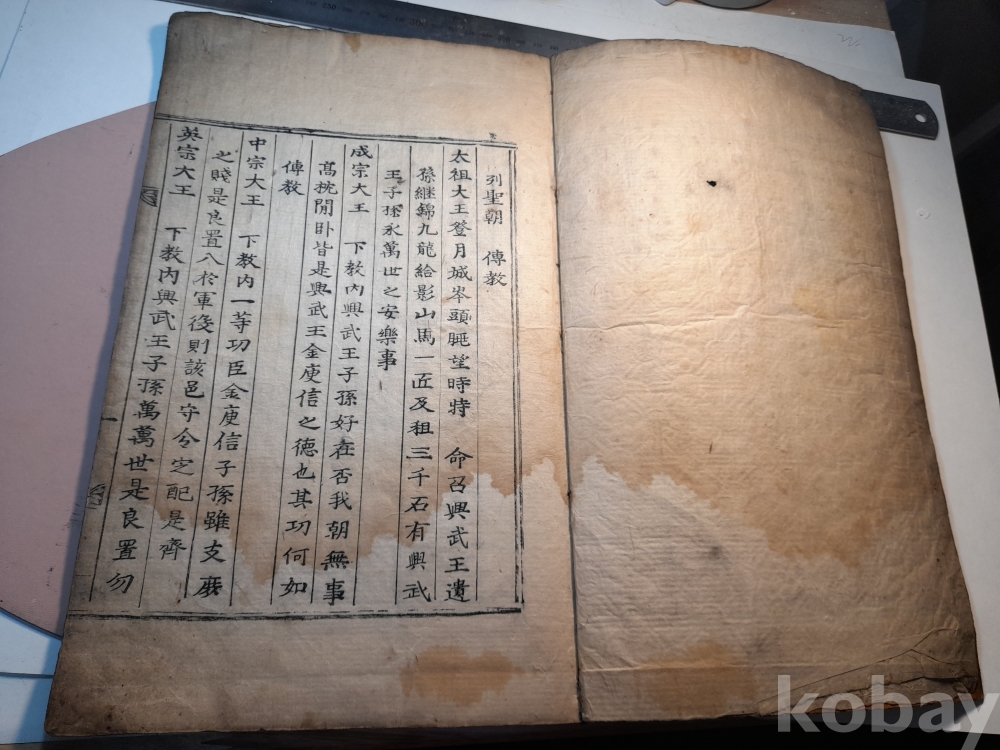 列聖朝 傳教
太祖大王登月城岑頭眺望時特 命召興武王遺
孫繼錦九龍給影山馬一匹及租三千石有興武
王子孫永萬世之安樂事
成宗大王 下教內興武王子孫好在否我朝無事
高枕閒卧皆是興武王金庾信之德也其功何如
傳教
中宗大王 下教內一等功臣金庾信子孫雖支庶
之賤是良置八於軍役則該邑守令定配是齊
英宗大王 下教內興武王子孫萬萬世是良置勿
一
kobay